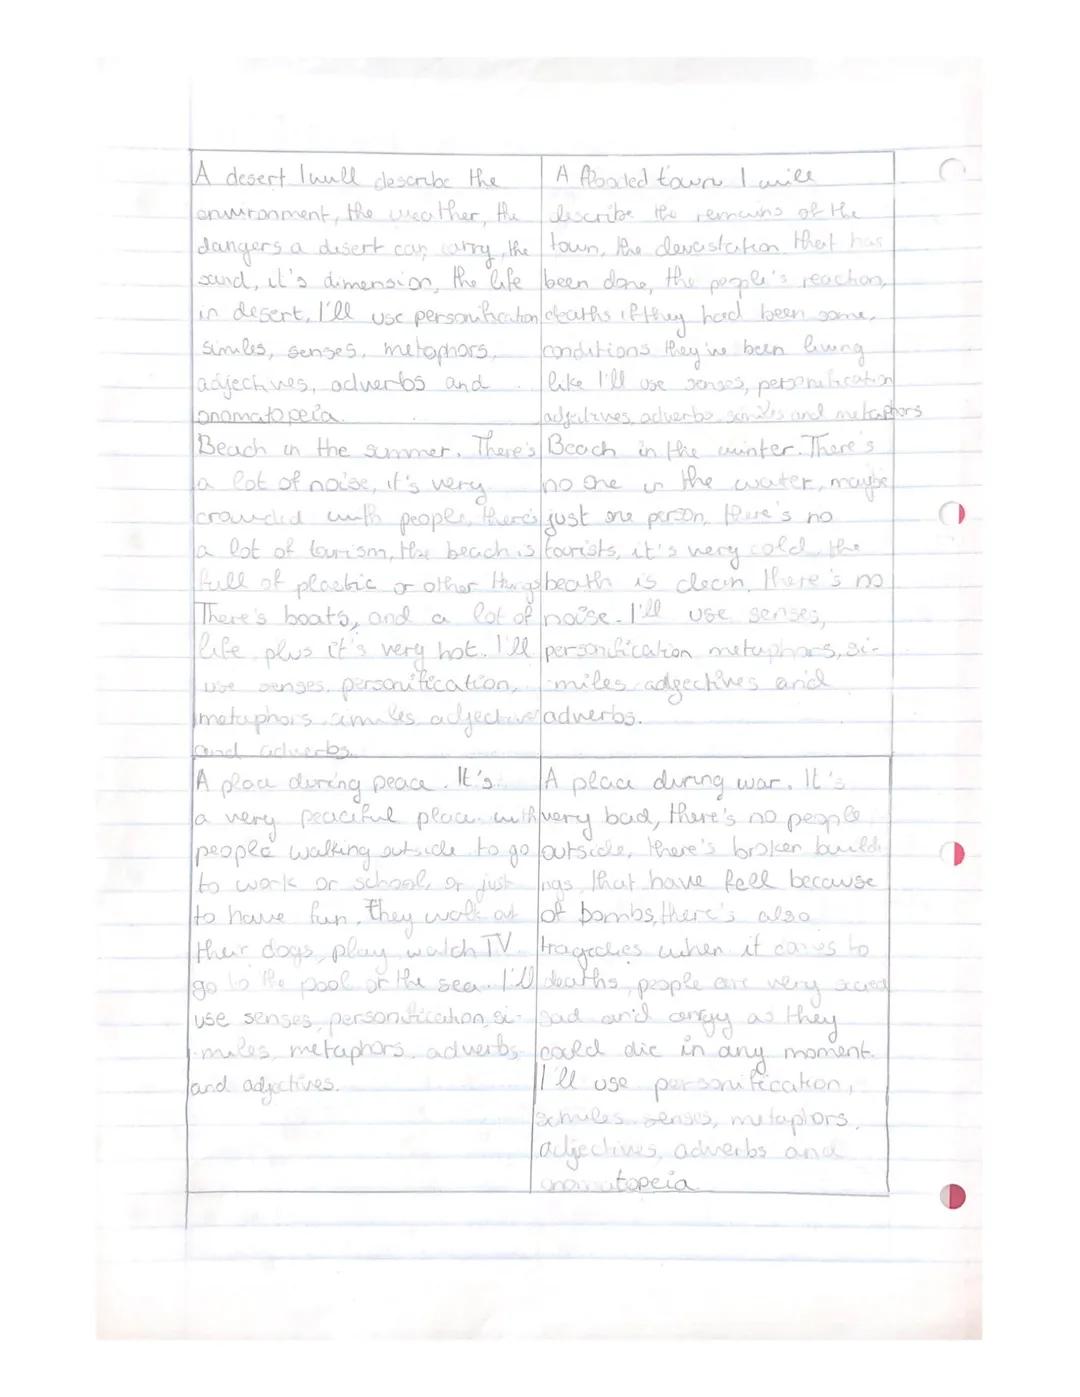 A desert I will describe the
environment, the weather, the
dangers a desert can carry, the
sand, it's dimension, the life
in desert, I'll use personification
similes, senses, metophors,
adjectives, adverbs and
onomatopeia.
A flooded town I will
describe the remains of the
town, the devastation that has
been done, the people's reaction,
deaths if they had been some,
conditions they've been living
like I'll use senses, personification
adjectives, adverbs, similes and metaphors
Beach in the summer. There's
a lot of noise, it's very
crowded with people, there's
a lot of tourism, the beach is
full of plastic or other things
There's boats, and a lot of
life plus it's very hot. I'll
use senses, personification,
metaphors, similes, adjectives
and adverbs.
Beach in the winter. There's
no one in the water, maybe
just one person, there's no
tourists, it's very cold, the
beath is clean, there's no
noise. I'll use senses,
personification metaphors, si-
-miles adgectives and
adverbs.
A place during peace. It's
a very peaceful place with
people walking outside to go
to work or school, or just
to have fun, they walk out
their dogs, play, watch TV
go to the pool or the sea. I'll
use senses, personification, si-
-miles, metaphors, adverbs
and adjectives.
A place during war. It's
very bad, there's no people
outside, there's broken build-
ings, that have fell because
of bombs, there's also
tragedies when it comes to
deaths, people are very scared
sad and angry as they
could die in any moment.
I'll use personification,
similes, senses, metaplors,
adjectives, adverbs and
onomatopeia